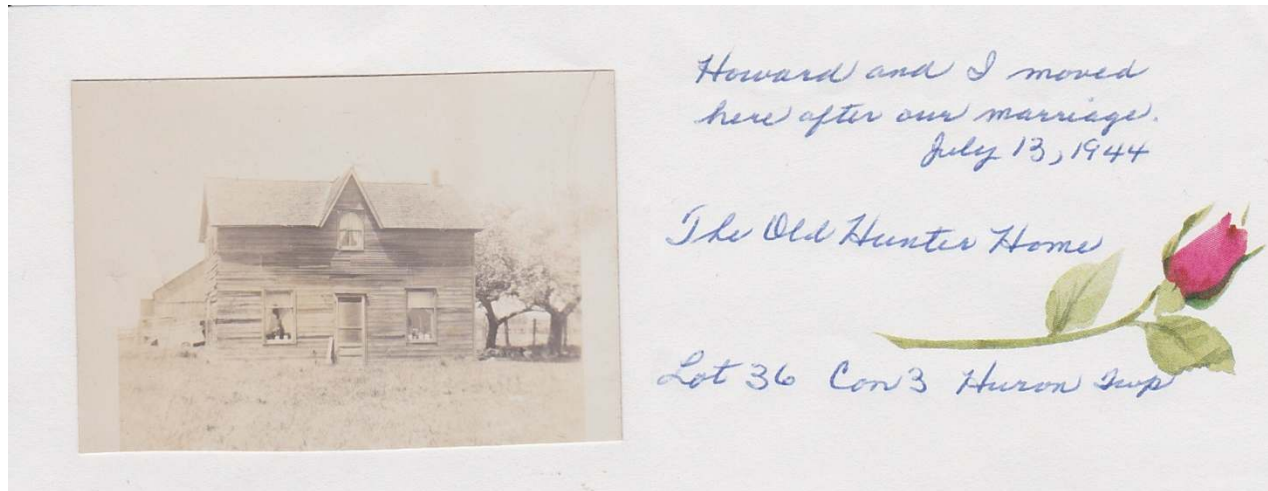 Howard and I moved
here after our marriage.
July 13, 1944
The Old Hunter Home
Lot 36 Con 3 Huron Twp